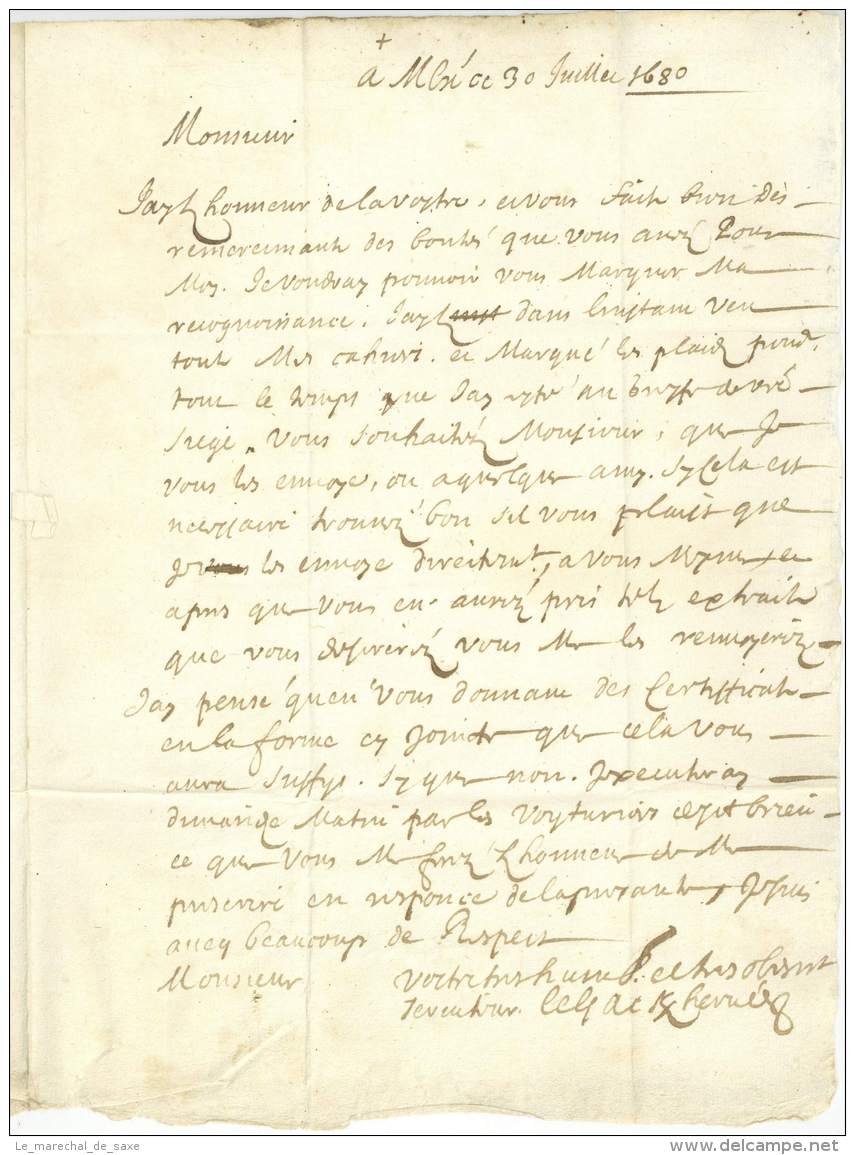 +
a ce 30 Juillet 1680
Monsieur
Jay lhonneur de la vostre, et vous fait bien des
remerciment des bontés que vous avez Pour
Moy. Je voudray pouvoir vous Marquer Ma
recognoissance. Jay dans linstant veu
tout Mes cahiers. et Marqué les plaids pend.
tout le temps que Jay esté au de vré
Siege. Vous souhaités Monsieur, que Je
vous les envoye, ou a quelque amy. sy cela est
necessaire trouvez bon sil vous plaist que
Je les envoye directent. a vous Mesme et
apres que vous en aurez pris tels extraits
que vous desirerez vous Me les renvoyerez
Jay pensé quen vous donnant des Certifficats
en la forme cy jointe que cela vous
aura suffy. sy que non. Jexecuteray
dimanche Matin par les voyturiers de st brieu
ce que vous Me ferez lhonneur de Me
prescrire en responce de la presante, Je suis
avecq beaucoup de Respect
Monsieur vostre tres humb. et tres obeisnt
serviteur.
Le_marechal_de_saxe
www.delcampe.net